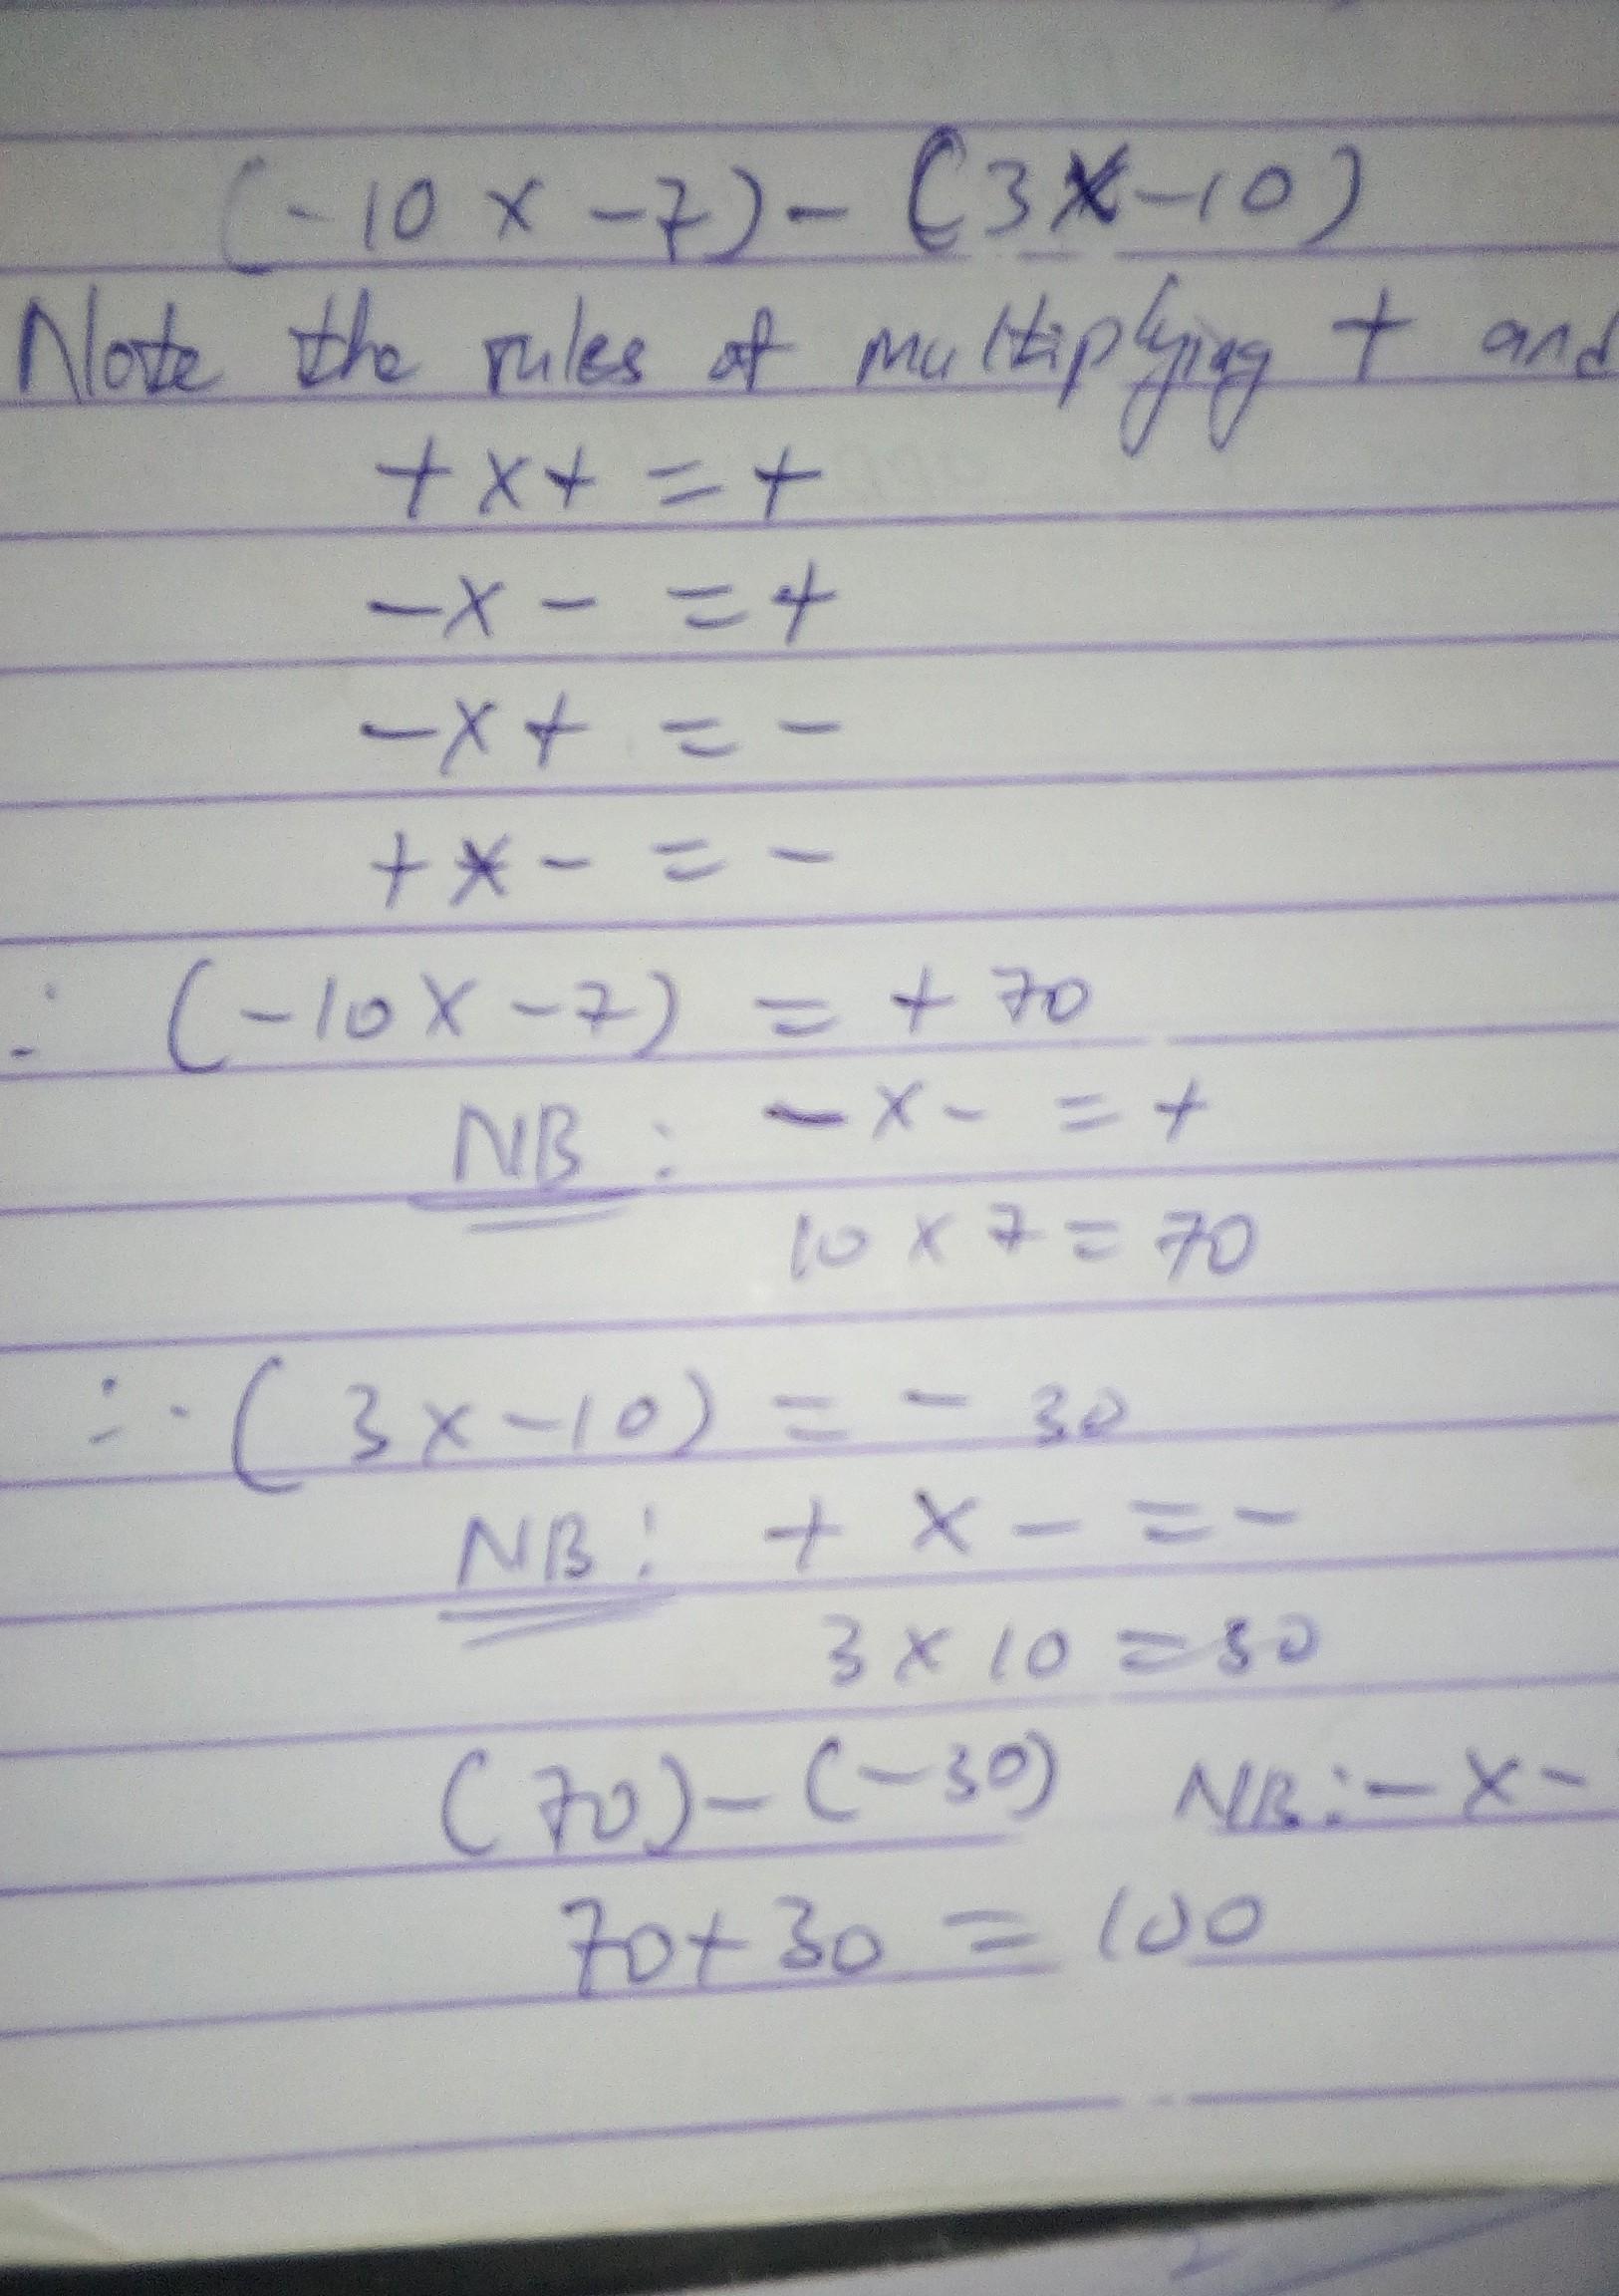 (-10 x -7) - (3x-10)
Note the rules of multiplying + and
+ x + = +
- x - = +
- x + = -
+ x - = -
∴ (-10 x -7) = + 70
NB : - x - = +
10 x 7 = 70
∴ - (3 x -10) = - 30
NB : + x - = -
3 x 10 = 30
(70) - (-30) NB : - x -
70 + 30 = 100